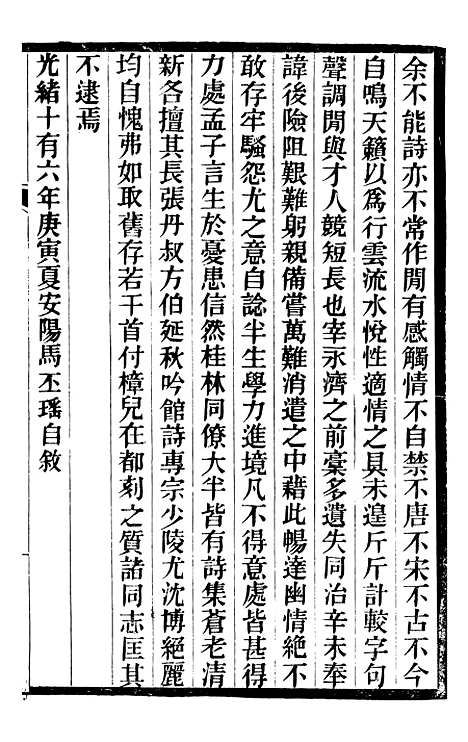 余不能詩亦不常作閒有感觸情不自禁不唐不宋不古不今
自鳴天籟以爲行雲流水悅性適情之具未遑斤斤計較字句
聲調閒與才人競短長也宰永濟之前稾多遺失同治辛未奉
諱後險阻艱難躬親備嘗萬難消遣之中藉此暢達幽情絶不
敢存牢騷怨尤之意自諗半生學力進境凡不得意處皆甚得
力處孟子言生於憂患信然桂林同僚大半皆有詩集蒼老清
新各擅其長張丹叔方伯延秋吟館詩專宗少陵尤沈博絶麗
均自愧弗如取舊存若干首付樟兒在都刻之質諸同志匡其
不逮焉
光緒十有六年庚寅夏安陽馬丕瑶自敘